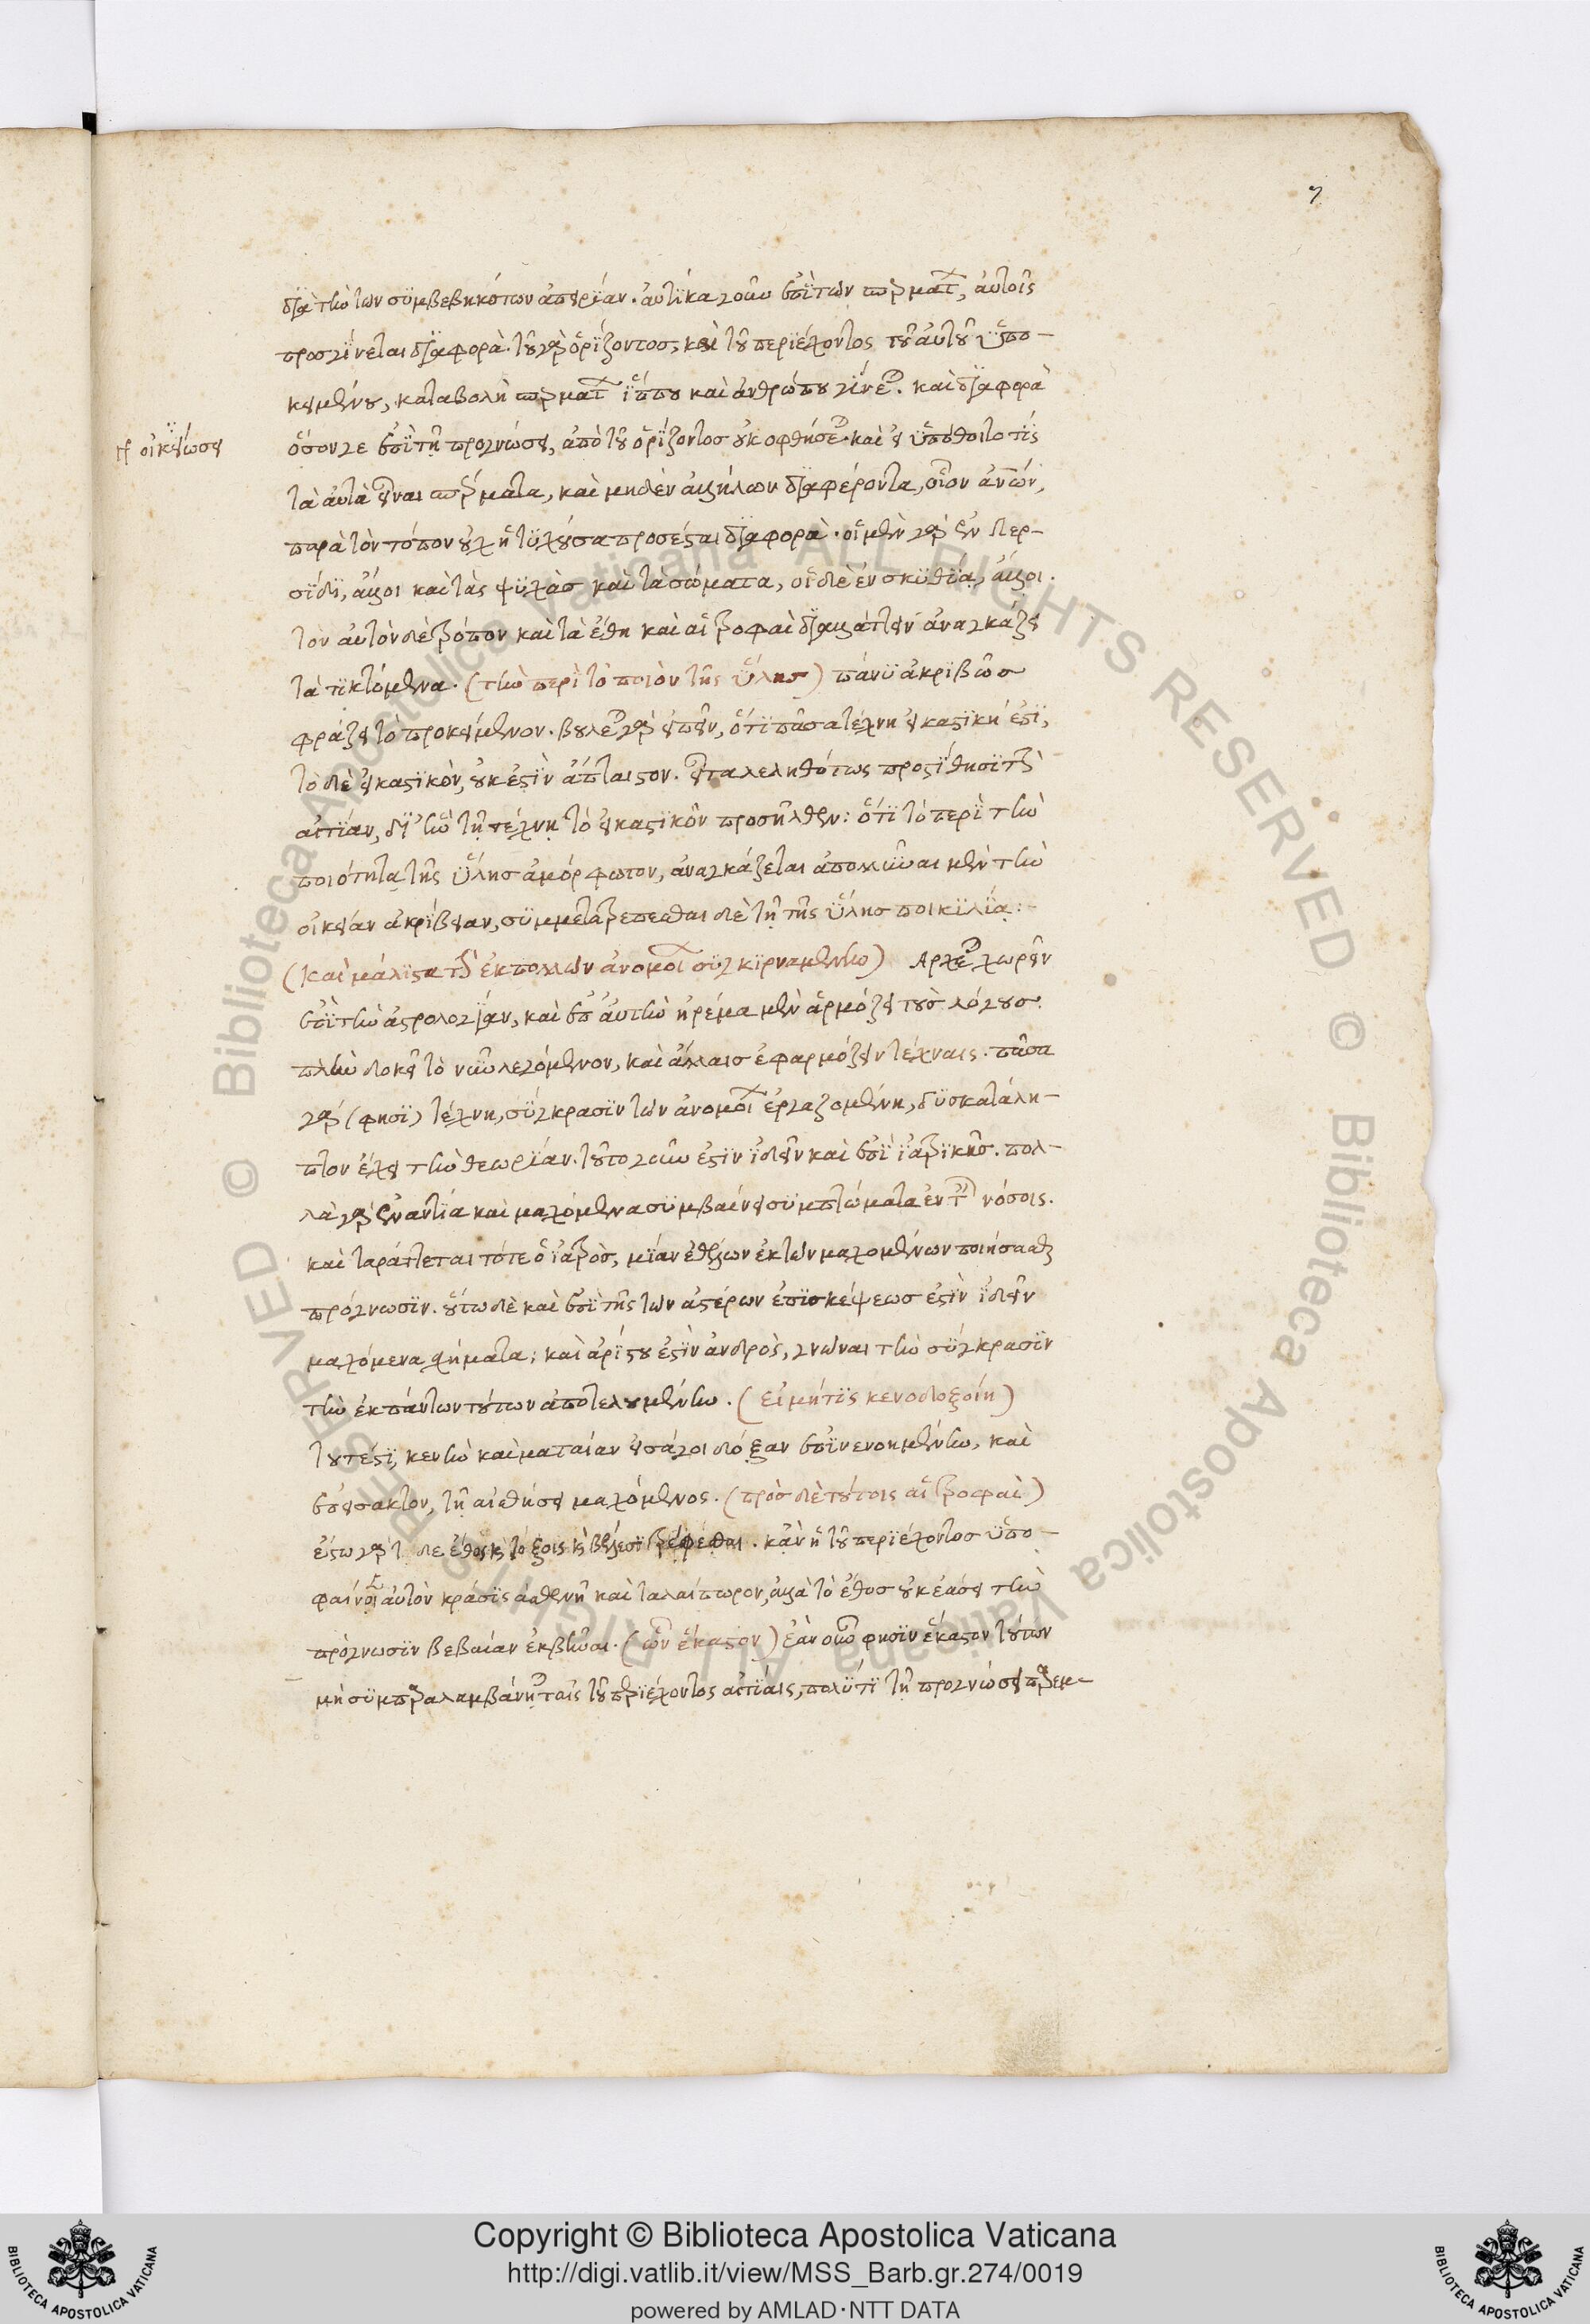 7
διὰ τὴν τῶν συμβεβηκότων ἀπειρίαν. αὐτίκα γοῦν ἐπὶ τῶν σπερμάτ, αὐτοῖς
προσγίνεται διαφορὰ. τοῦ γὰρ ὁρίζοντος, καὶ τοῦ περιέχοντος τοῦ αὐτοῦ ὑπο-
κειμένου, καταβολὴ σπερμάτ ἵππου καὶ ἀνθρώπου γίνεται. καὶ διαφορὰ
οἰκειώσει
ὅσον γε ἐπὶ τῇ προγνώσει, ἀπὸ τοῦ ὁρίζοντος οὐκ ὀφθήσεται. καὶ εἰ ὑπόθοιτο τίς
τὰ αὐτὰ εἶναι σπέρματα, καὶ μηδὲν ἀλλήλων διαφέροντα, οἷον ἀνῶν,
παρὰ τὸν τόπον οὐχ ἡ τυχοῦσα προσέσται διαφορὰ. οἱ μὲν γὰρ ἐν Περ-
σίδι, ἄλλοι καὶ τὰς ψυχὰς καὶ τὰ σώματα, οἱ δὲ ἐν σκυθίᾳ, ἄλλοι.
τὸν αὐτὸν δὲ τρόπον καὶ τὰ ἔθη καὶ αἱ τροφαὶ διαλλάττειν ἀναγκάζει
τὰ τικτόμενα. (τὴν περὶ τὸ ποιὸν τῆς ὕλης) πάνυ ἀκριβῶς
φράζει τὸ προκείμενον. βούλεται γὰρ εἰπεῖν, ὅτι πᾶσα τέχνη εἰκαστικὴ ἐστὶ,
τὸ δὲ εἰκαστικὸν, οὐκ ἐστὶν ἄπταιστον. εἶτα λεληθότως προστίθησι τὴν
αἰτίαν, δι' ἣν τῇ τέχνῃ τὸ εἰκαστικὸν προσῆλθεν: ὅτι τὸ περὶ τὴν
ποιότητα τῆς ὕλης ἀμόρφωτον, ἀναγκάζεται ἀπολλύναι μὲν τὴν
οἰκείαν ἀκρίβειαν, συμμετατρέπεσθαι δὲ τῇ τῆς ὕλης ποικιλίᾳ:
(καὶ μάλιστα τὴν ἐκ πολλῶν ἀνομοί συγκιρναμένην) Ἄρχεται χωρεῖν
ἐπὶ τὴν ἀστρολογίαν, καὶ ἐπ' αὐτὴν ἠρέμα μὲν ἁρμόζει τοὺς λόγους.
πλὴν δοκεῖ τὸ νῦν λεγόμενον, καὶ ἄλλαις ἐφαρμόζειν τέχναις. πᾶσα
γὰρ (φησὶ) τέχνη, σύγκρασιν τῶν ἀνομοί ἐργαζομένη, δυσκατάλη-
πτον ἔχει τὴν θεωρίαν. τοῦτο γοῦν ἐστὶν ἰδεῖν καὶ ἐπὶ ἰατρικῆς. πολ-
λὰ γὰρ ἐναντία καὶ μαχόμενα συμβαίνει συμπτώματα ἐν ταῖς νόσοις.
καὶ ταράττεται τότε ὁ ἰατρὸς, μίαν ἐθέλων ἐκ τῶν μαχομένων ποιήσασθαι
πρόγνωσιν. οὕτω δὲ καὶ ἐπὶ τῆς τῶν ἀστέρων ἐπισκέψεως ἐστὶν ἰδεῖν
μαχόμενα σχήματα; καὶ ἀρίστου ἐστὶν ἀνδρὸς, γνῶναι τὴν σύγκρασιν
τὴν ἐκ πάντων τούτων ἀποτελουμένην. (εἰ μή τις κενοδοξοίη)
τουτέστι, κενὴν καὶ ματαίαν εἰσάγοι δόξαν ἐπινενοημένην, καὶ
ἐπείσακτον, τῇ αἰσθήσει μαχόμενος. (πρὸς δὲ τούτοις αἱ τροφαὶ)
ἔστω γὰρ δὲ ἔθος τόξοις βέλεσι τρέφεσθαι. κἂν ἡ τοῦ περιέχοντος ὑπο-
φαίνοι αὐτὸν κράσις ἀσθενῆ καὶ ταλαίπωρον, ἀλλὰ τὸ ἔθος οὐκ ἐάσει τὴν
πρόγνωσιν βεβαίαν ἐκβῆναι. (ὧν ἕκαστον) ἐὰν οὖν φησὶν ἕκαστον τούτων
μὴ συμπαραλαμβάνηται ταῖς τοῦ περιέχοντος αἰτίαις, πολύ τι τῇ προγνώσει παρεμ-
Copyright © Biblioteca Apostolica Vaticana
http://digi.vatlib.it/view/MSS_Barb.gr.274/0019
powered by AMLAD·NTT DATA